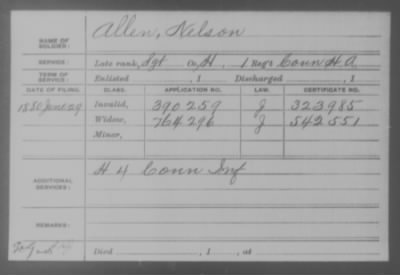 NAME OF SOLDIER: Allen, Nelson
SERVICE: Late rank, Sgt Co. H, 1 Reg't Conn H A
TERM OF SERVICE: Enlisted , 1 Discharged , 1
DATE OF FILING. CLASS. APPLICATION NO. LAW. CERTIFICATE NO.
1880 June 29 Invalid, 390259 J 323985
Widow, 764296 J 542551
Minor,
ADDITIONAL SERVICES: H 4 Conn Inf
REMARKS:
Died , 1 , at